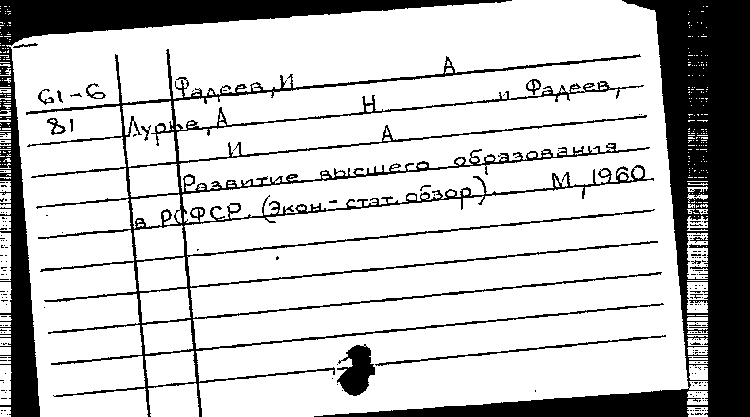 61-6 Фадеев, И А
81 Лурье, А Н и Фадеев,
И А
Развитие высшего образования
в РСФСР. (Экон.-стат. обзор). М, 1960